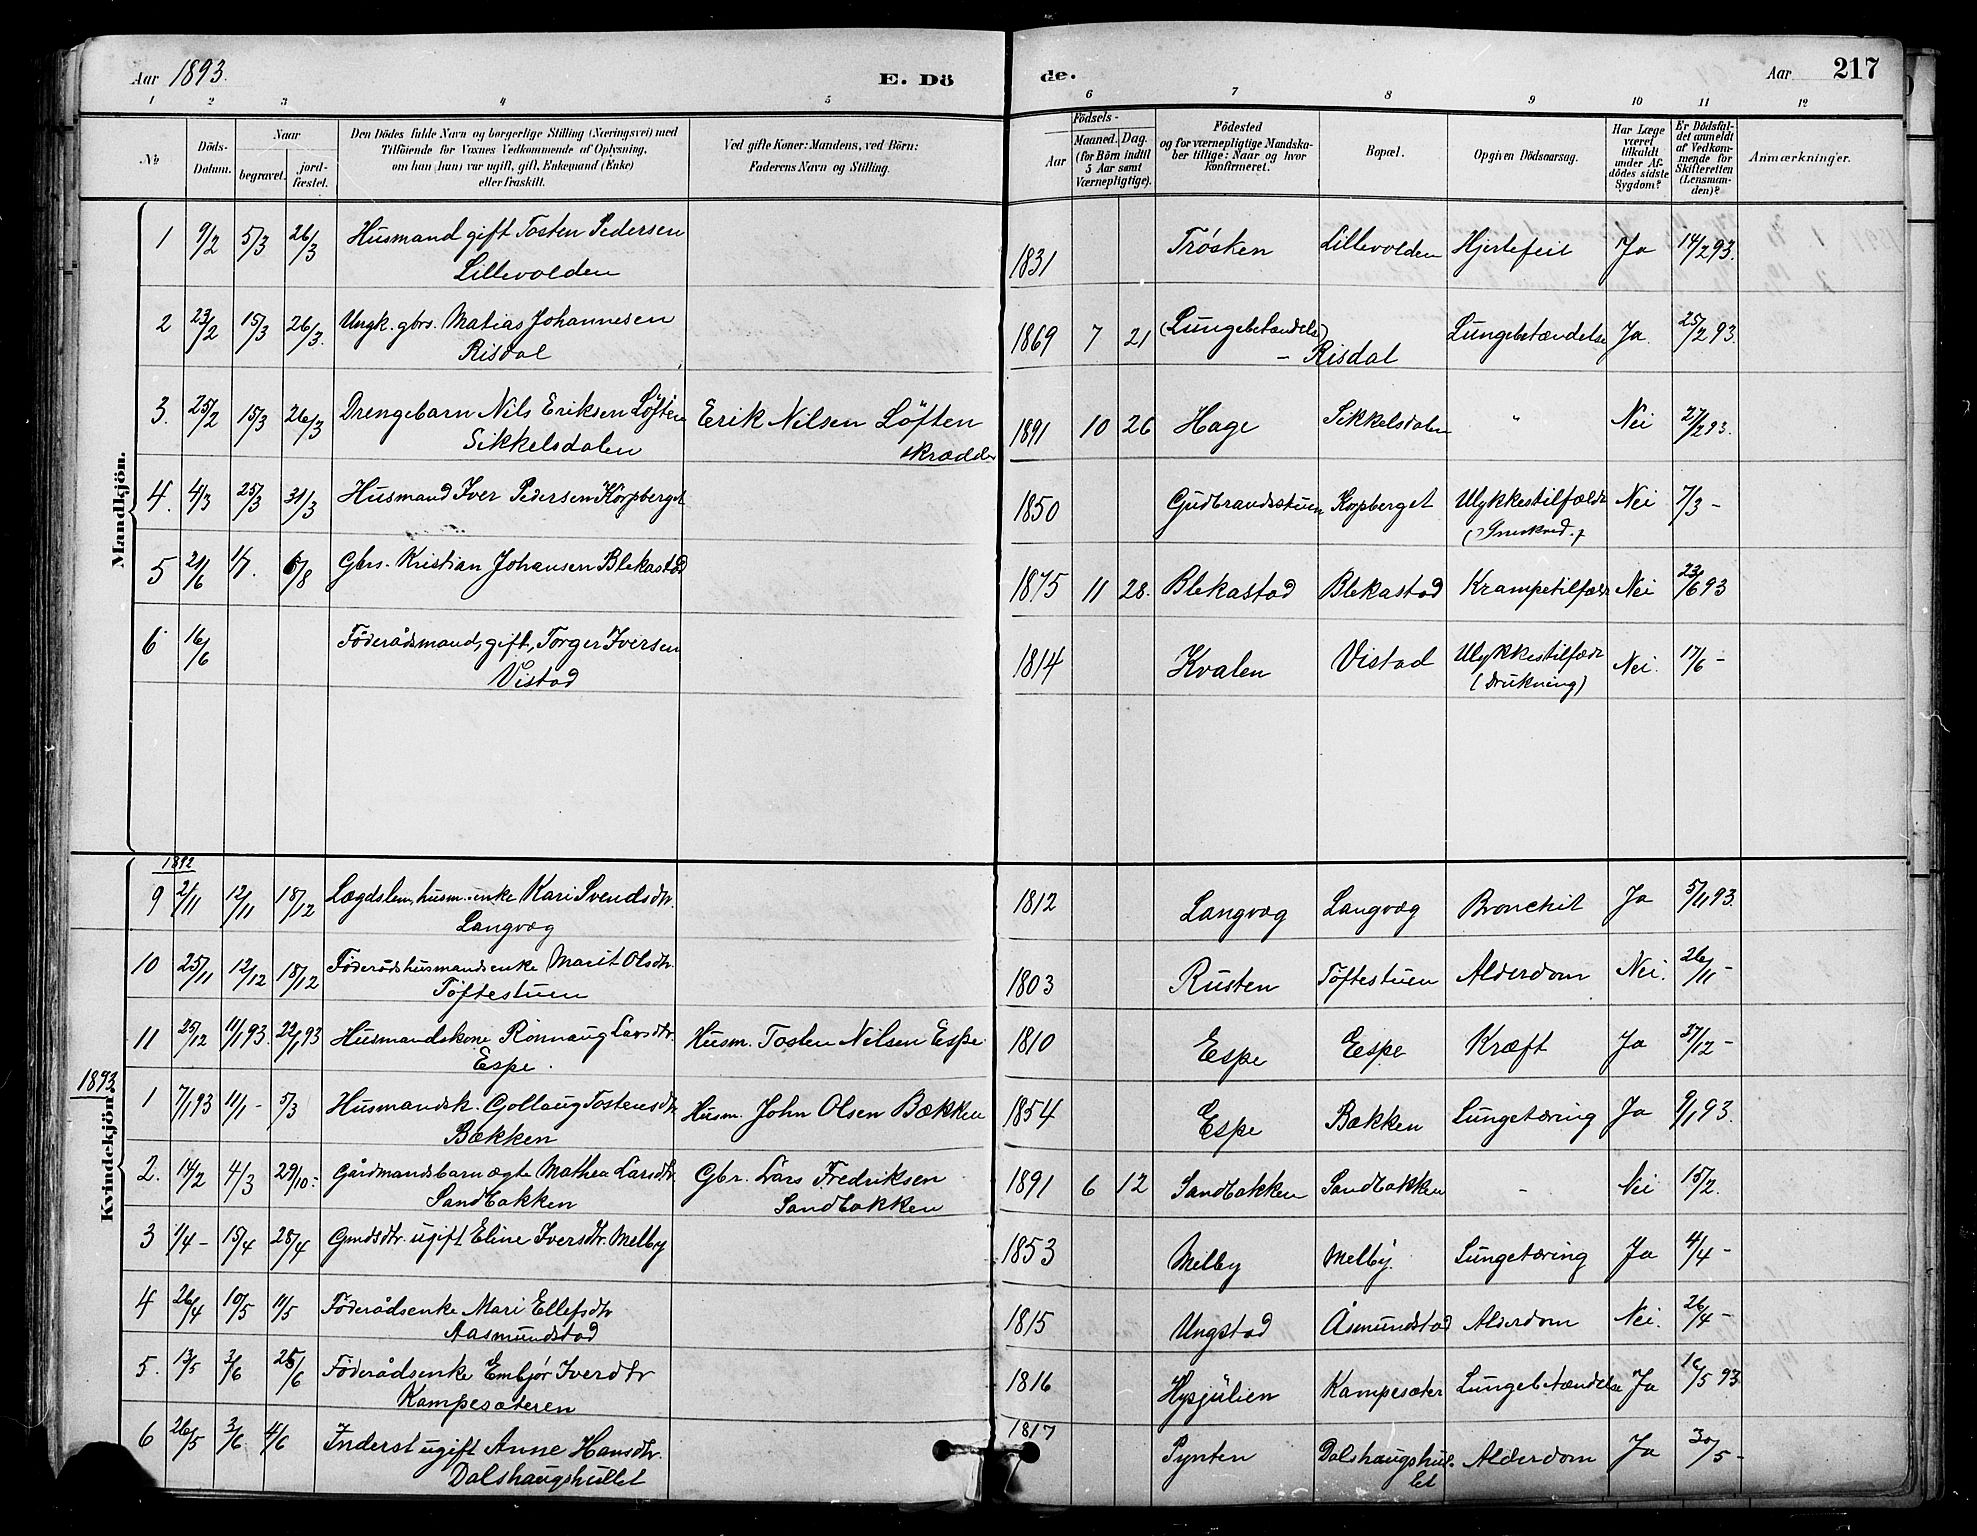 Aar 1893. E. Dö de. Aar 217
1 2 3 4 5 6 7 8 9 10 11 12
No Döds-Datum. Naar begravet. jord-fæstet. Den Dödes fulde Navn og borgerlige Stilling (Næringsvei) med Tilföiende for Voxnes Vedkommende af Oplysning, om han (hun) var ugift, gift, Enkemand (Enke) eller fraskilt. Ved gifte Koner: Mandens, ved Börn: Faderens Navn og Stilling. Födsels- Aar Maaned. Dag. (for Börn indtil 5 Aar samt Værnepligtige). Födested og for værnepligtige Mandskaber tillige: Naar og hvor konfirmeret. Bopæl. Opgiven Dödsaarsag. Har Læge været tilkaldt under Afdödes sidste Sygdom? Er Dödsfaldet anmeldt af Vedkommende for Skifteretten (Lensmanden)? Anmærkninger.
Mandkjön.
1 9/2 5/3 26/3 Husmand gift Tosten Pedersen Lillevolden 1831 Trøsken Lillevolden Hjertefeil Ja 14/2 93.
2 23/2 15/3 26/3. Ungk. gbrs. Matias Johannesen Risdal 1869 7 21 (Lungebetændelse) - Risdal Lungebetændelse Ja. 25/2 93.
3. 25/2 15/3 26/3 Drengebarn Nils Eriksen Løften Sikkelsdalen Erik Nilsen Løften skrædder 1891 10 26 Hage Sikkelsdalen " Nei 27/2 93.
4. 4/3 25/3 31/3 Husmand Iver Pedersen Korpberget 1850 Gudbrandsstuen Korpberget Ulykkestilfælde Nei 7/3 -
5 21/6 1/7. 6/8 Gbrs. Kristian Johansen Blekastad 1875 11 28. Blekastad Blekastad Krampetilfælde Nei 23/6 93
6 16/6 Føderådsmand, gift, Torger Iversen Vistad 1814 Kvalen Vistad Ulykkestilfælde (Drukning) Nei. 17/6 -
Kvindekjön.
1892
9 2/11 12/11 18/12 Lægdslem, husm.enke Kari Svendsdtr. Langvæg 1812 Langvæg Langvæg Bronchit Ja 5/11 93.
10 25/11 12/12 18/12 Føderådshusmandsenke Marit Olsdtr. Toftestuen 1803 Rusten Toftestuen Alderdom Nei. 26/11 -
11 25/12 11/1 93. 22/1 93 Husmandskone Rønnaug Larsdtr. Espe. Husm. Tosten Nilsen Espe 1810 Espe Espe Kræft Ja 27/12 -
1893
1 7/1 93 11/1 - 5/3 Husmandsk. Gollaug Tostensdtr. Bækken Husm. John Olsen Bækken 1854 Espe Bækken Lungetæring Ja 9/1 93.
2. 14/2 4/3 29/10 - Gårdmandsbarn ægte Mathea Larsdtr. Sandbakken Gbr. Lars Fredriksen Sandbakken 1891 6 12 Sandbakken Sandbakken - Nei 15/2.
3 1/4 - 15/4 28/4 Gmdsdtr. ugift Eline Iversdtr. Melby 1853 Melby Melby. Lungetæring Ja 4/4 -
4 26/4 10/5 11/5 Føderådsenke Mari Ellefsdtr Aasmundstad 1815 Ungstad Åsmundstad Alderdom Nei. 26/4 -
5. 13/5 3/6 25/6 Føderådsenke Embjør Iverdtr Kampesæteren 1816 Hysjülien Kampesæter Lungebetændelse Ja 16/5 93
6 26/5 3/6 4/6 Inderst ugift Anne Hansdtr. Dalshaugshullet 1817 Pynten Dalshaugshullet Alderdom Ja 30/5 -